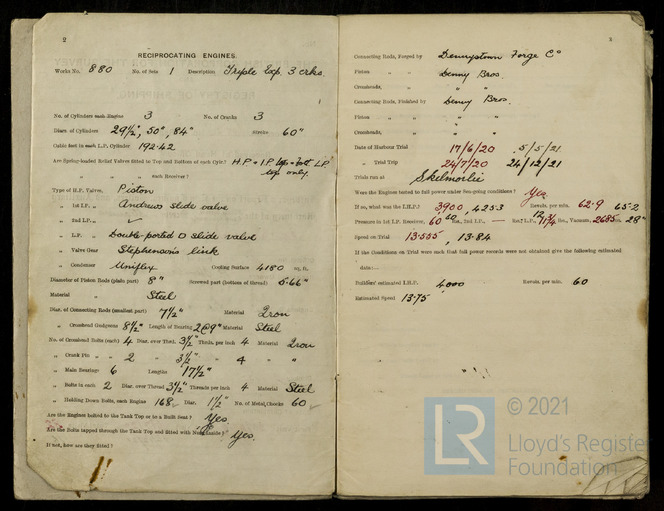 2
RECIPROCATING ENGINES.
Works No. 880 No. of Sets 1 Description Triple Exp. 3 crks.
No. of Cylinders each Engine 3 No. of Cranks 3
Diars. of Cylinders 29½", 50", 84" Stroke 60"
Cubic feet in each L.P. Cylinder 192.42
Are Spring-loaded Relief Valves fitted to Top and Bottom of each Cylr.? H.P. & I.P. top & bott. L.P. top only.
" " " each Receiver?
Type of H.P. Valves, Piston
" 1st I.P. " Andrews slide valve
" 2nd I.P. " ✓
" L.P. " Double-ported D slide valve
" Valve Gear Stephenson's link
" Condenser Uniflex Cooling Surface 4180 sq. ft.
Diameter of Piston Rods (plain part) 8" Screwed part (bottom of thread) 5.66"
Material " Steel
Diar. of Connecting Rods (smallest part) 7½" Material Iron
" Crosshead Gudgeons 8½" Length of Bearing 2@9" Material Steel
No. of Crosshead Bolts (each) 4 Diar. over Thrd. 3½" Thrds. per inch 4 Material Iron
" Crank Pin " " 2 " 3½" " 4 " "
" Main Bearings 6 Lengths 17½"
" Bolts in each 2 Diar. over Thread 3½" Threads per inch 4 Material Steel
" Holding Down Bolts, each Engine 168 Diar. 1½" No. of Metal Chocks 60
Are the Engines bolted to the Tank Top or to a Built Seat? Yes.
Are the Bolts tapped through the Tank Top and fitted with Nuts Inside? Yes.
If not, how are they fitted?
3
Connecting Rods, Forged by Dennystown Forge Co
Piston " " Denny Bros.
Crossheads, " "
Connecting Rods, Finished by Denny Bros.
Piston " "
Crossheads, " "
Date of Harbour Trial 17/6/20 5/5/21
" Trial Trip 24/7/20 24/12/21
Trials run at Skelmorlie
Were the Engines tested to full power under Sea-going conditions? Yes
If so, what was the I.H.P.? 3900, 4253 Revols. per min. 62.9 65.2
Pressure in 1st I.P. Receiver, 60 lbs., 2nd I.P., — lbs., L.P., lbs., Vacuum, ins. 28"
Speed on Trial 13.555, 13.84
If the Conditions on Trial were such that full power records were not obtained give the following estimated
data:—
Builders' estimated I.H.P. 4,000 Revols. per min. 60
Estimated Speed 13.75
LR
© 2021
Lloyd's Register
Foundation